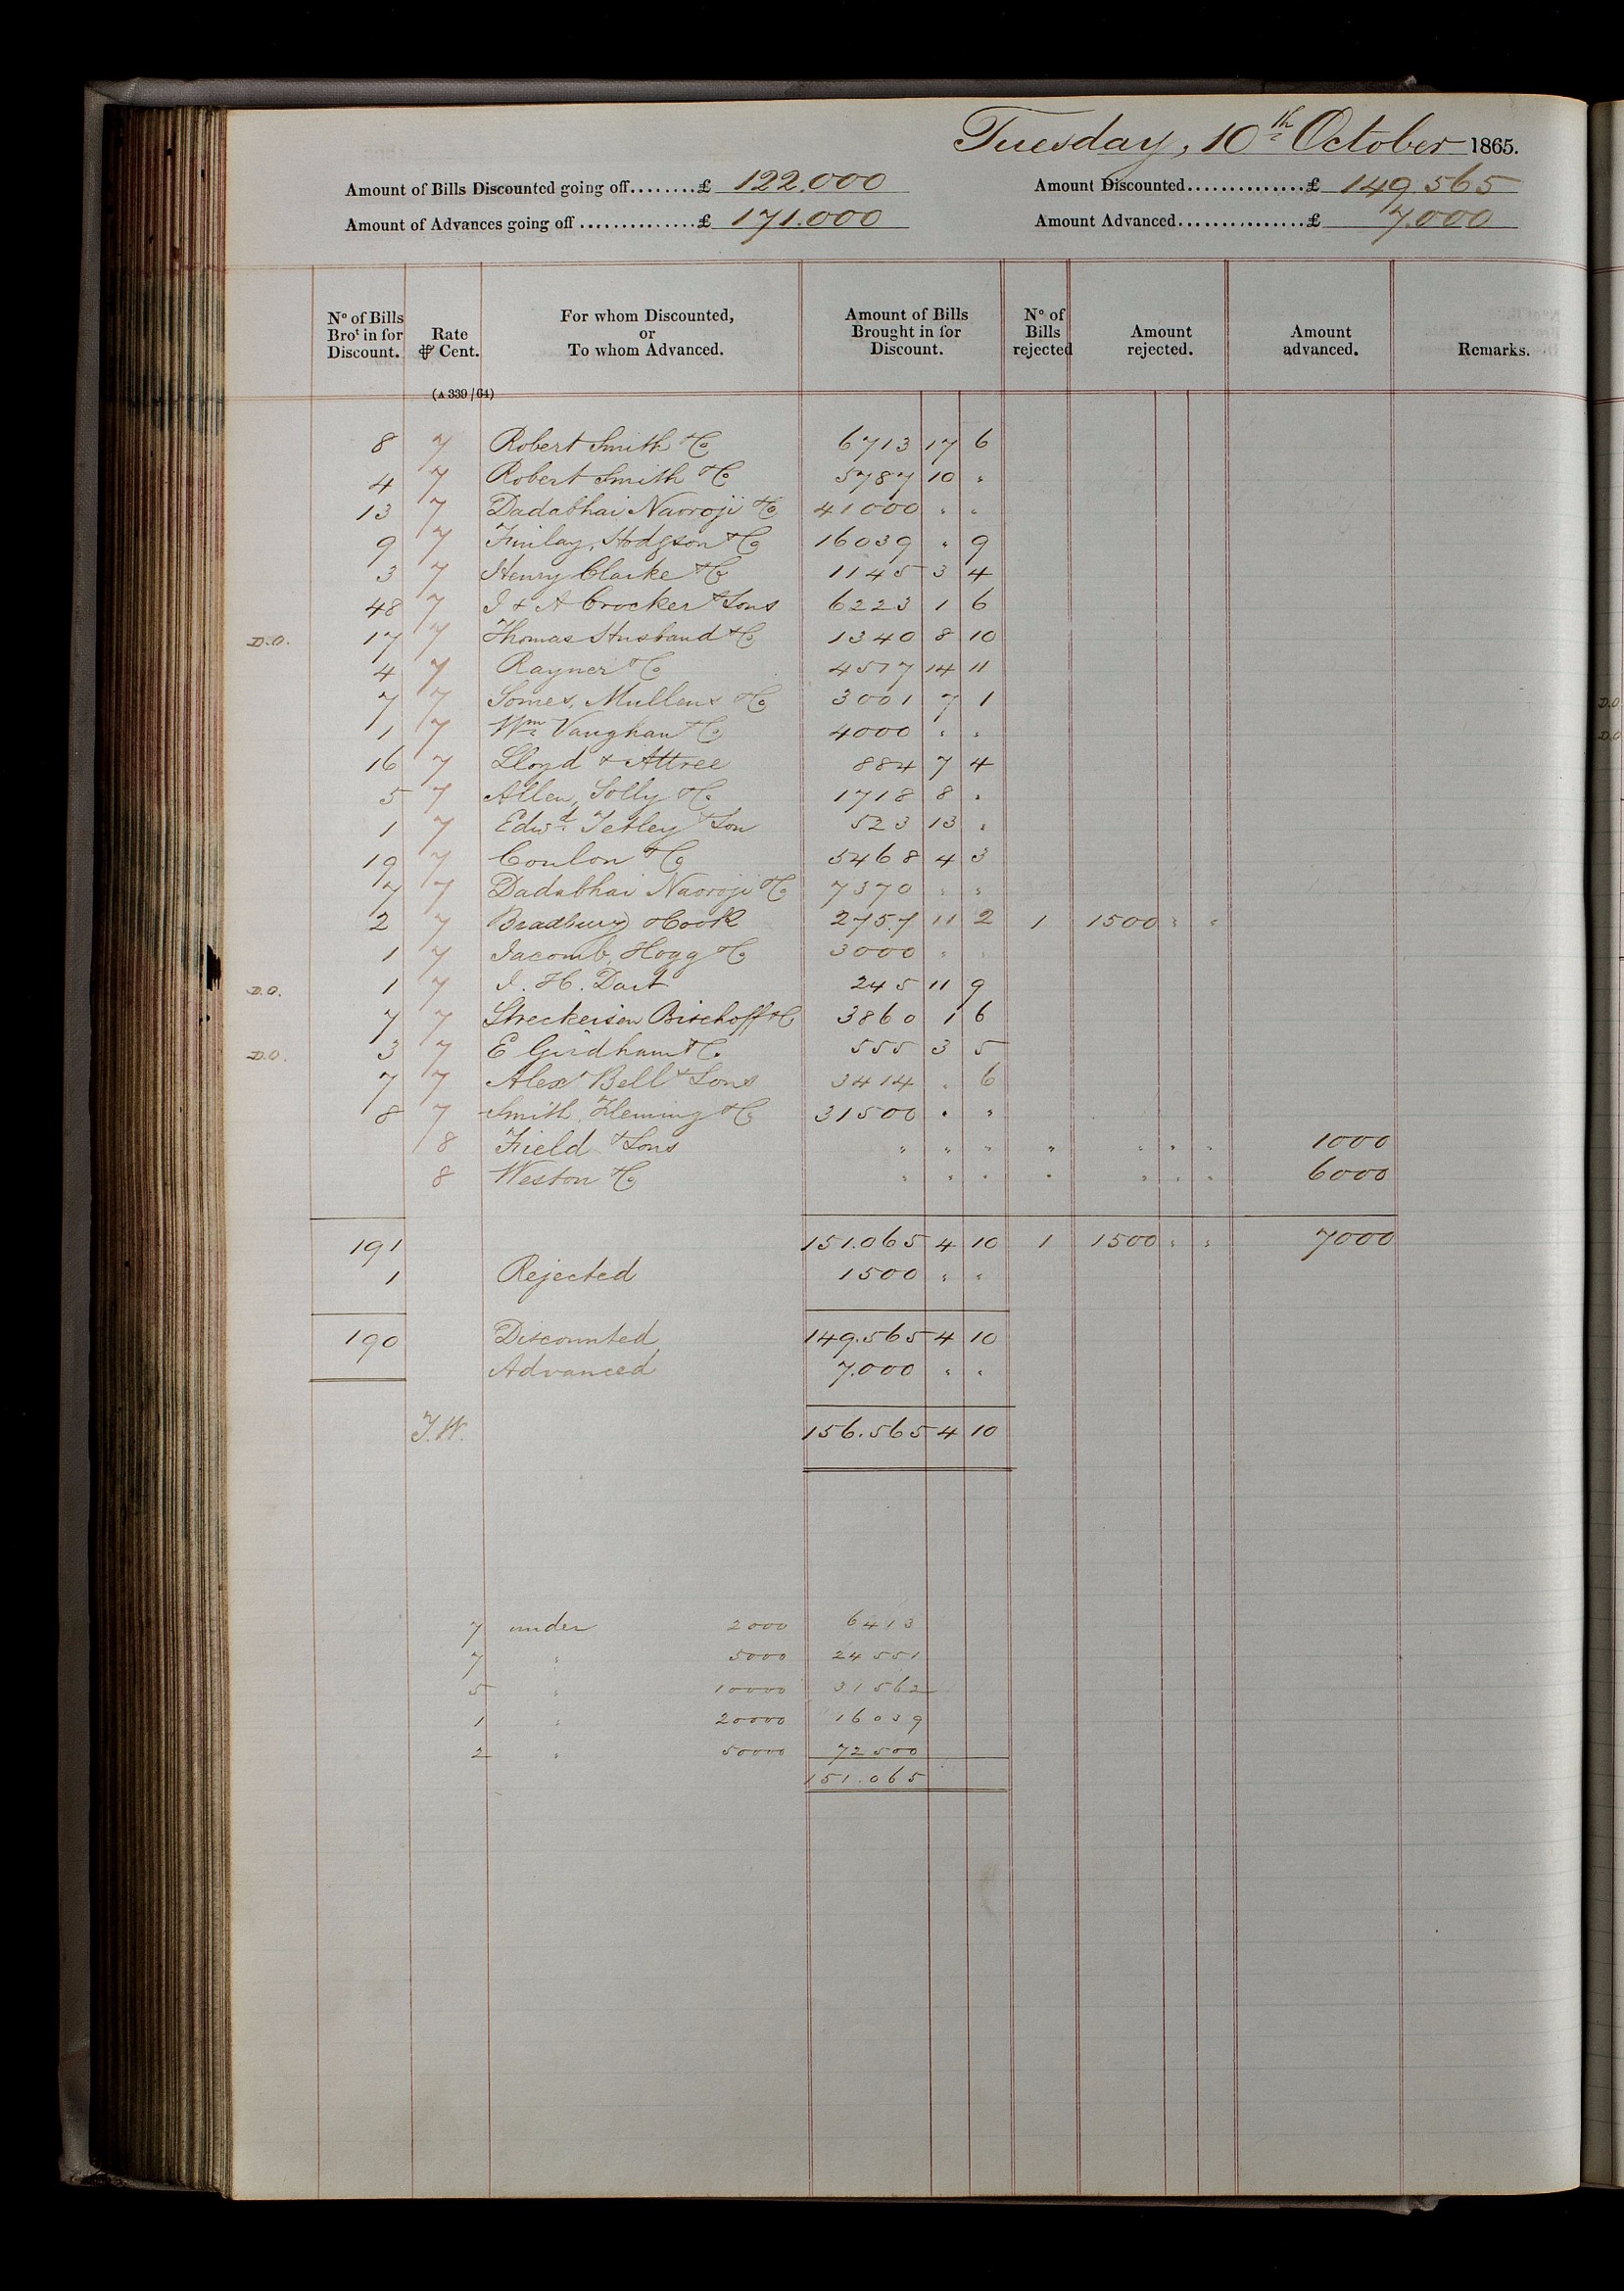 Tuesday, 10th October 1865.
Amount of Bills Discounted going off........£ 122.000 Amount Discounted..............£ 149.565
Amount of Advances going off..............£ 171.000 Amount Advanced...............£ 7.000
No of Bills Brot in for Discount. Rate ⅌ Cent. For whom Discounted, or To whom Advanced. Amount of Bills Brought in for Discount. No of Bills rejected Amount rejected. Amount advanced. Remarks.
(A 339/64)
8 7 Robert Smith & Co 6713 17 6
4 7 Robert Smith & Co 5787 10 "
13 7 Dadabhai Naoroji & Co 41000 " "
9 7 Finlay, Hodgson & Co 16039 " 9
3 7 Henry Clarke & Co 1145 3 4
48 7 I & A Crocker & Sons 6223 1 6
D.O. 17 7 Thomas Husband & Co 1340 8 10
4 7 Rayner & Co 4517 14 11
7 7 Somes, Mullens & Co 3001 7 1
1 7 Wm Vaughan & Co 4000 " "
16 7 Lloyd & Attree 884 7 4
5 7 Allen, Solly & Co 1718 8 "
1 7 Edwd Tetley & Son 523 13 "
19 7 Coulon & Co 5468 4 3
7 7 Dadabhai Naoroji & Co 7370 " "
2 7 Bradbury & Cook 2757 11 2 1 1500 " "
1 7 Jacomb, Hogg & Co 3000 " "
D.O. 1 7 I. H. Dart 245 11 9
7 7 Streckeisen Bischoff & Co 3860 1 6
D.O. 3 7 E Girdham & Co 555 3 5
7 7 Alexr Bell & Sons 3414 " 6
8 7 Smith, Fleming & Co 31500 " "
8 Field & Sons " " " " " " " 1000
8 Weston & Co " " " " " " " 6000
191 151.065 4 10 1 1500 " " 7000
1 Rejected 1500 " "
190 Discounted 149.565 4 10
Advanced 7.000 " "
T.W. 156.565 4 10
7 under 2000 6413
7 " 5000 24551
5 " 10000 31562
1 " 20000 16039
2 " 50000 72500
151.065